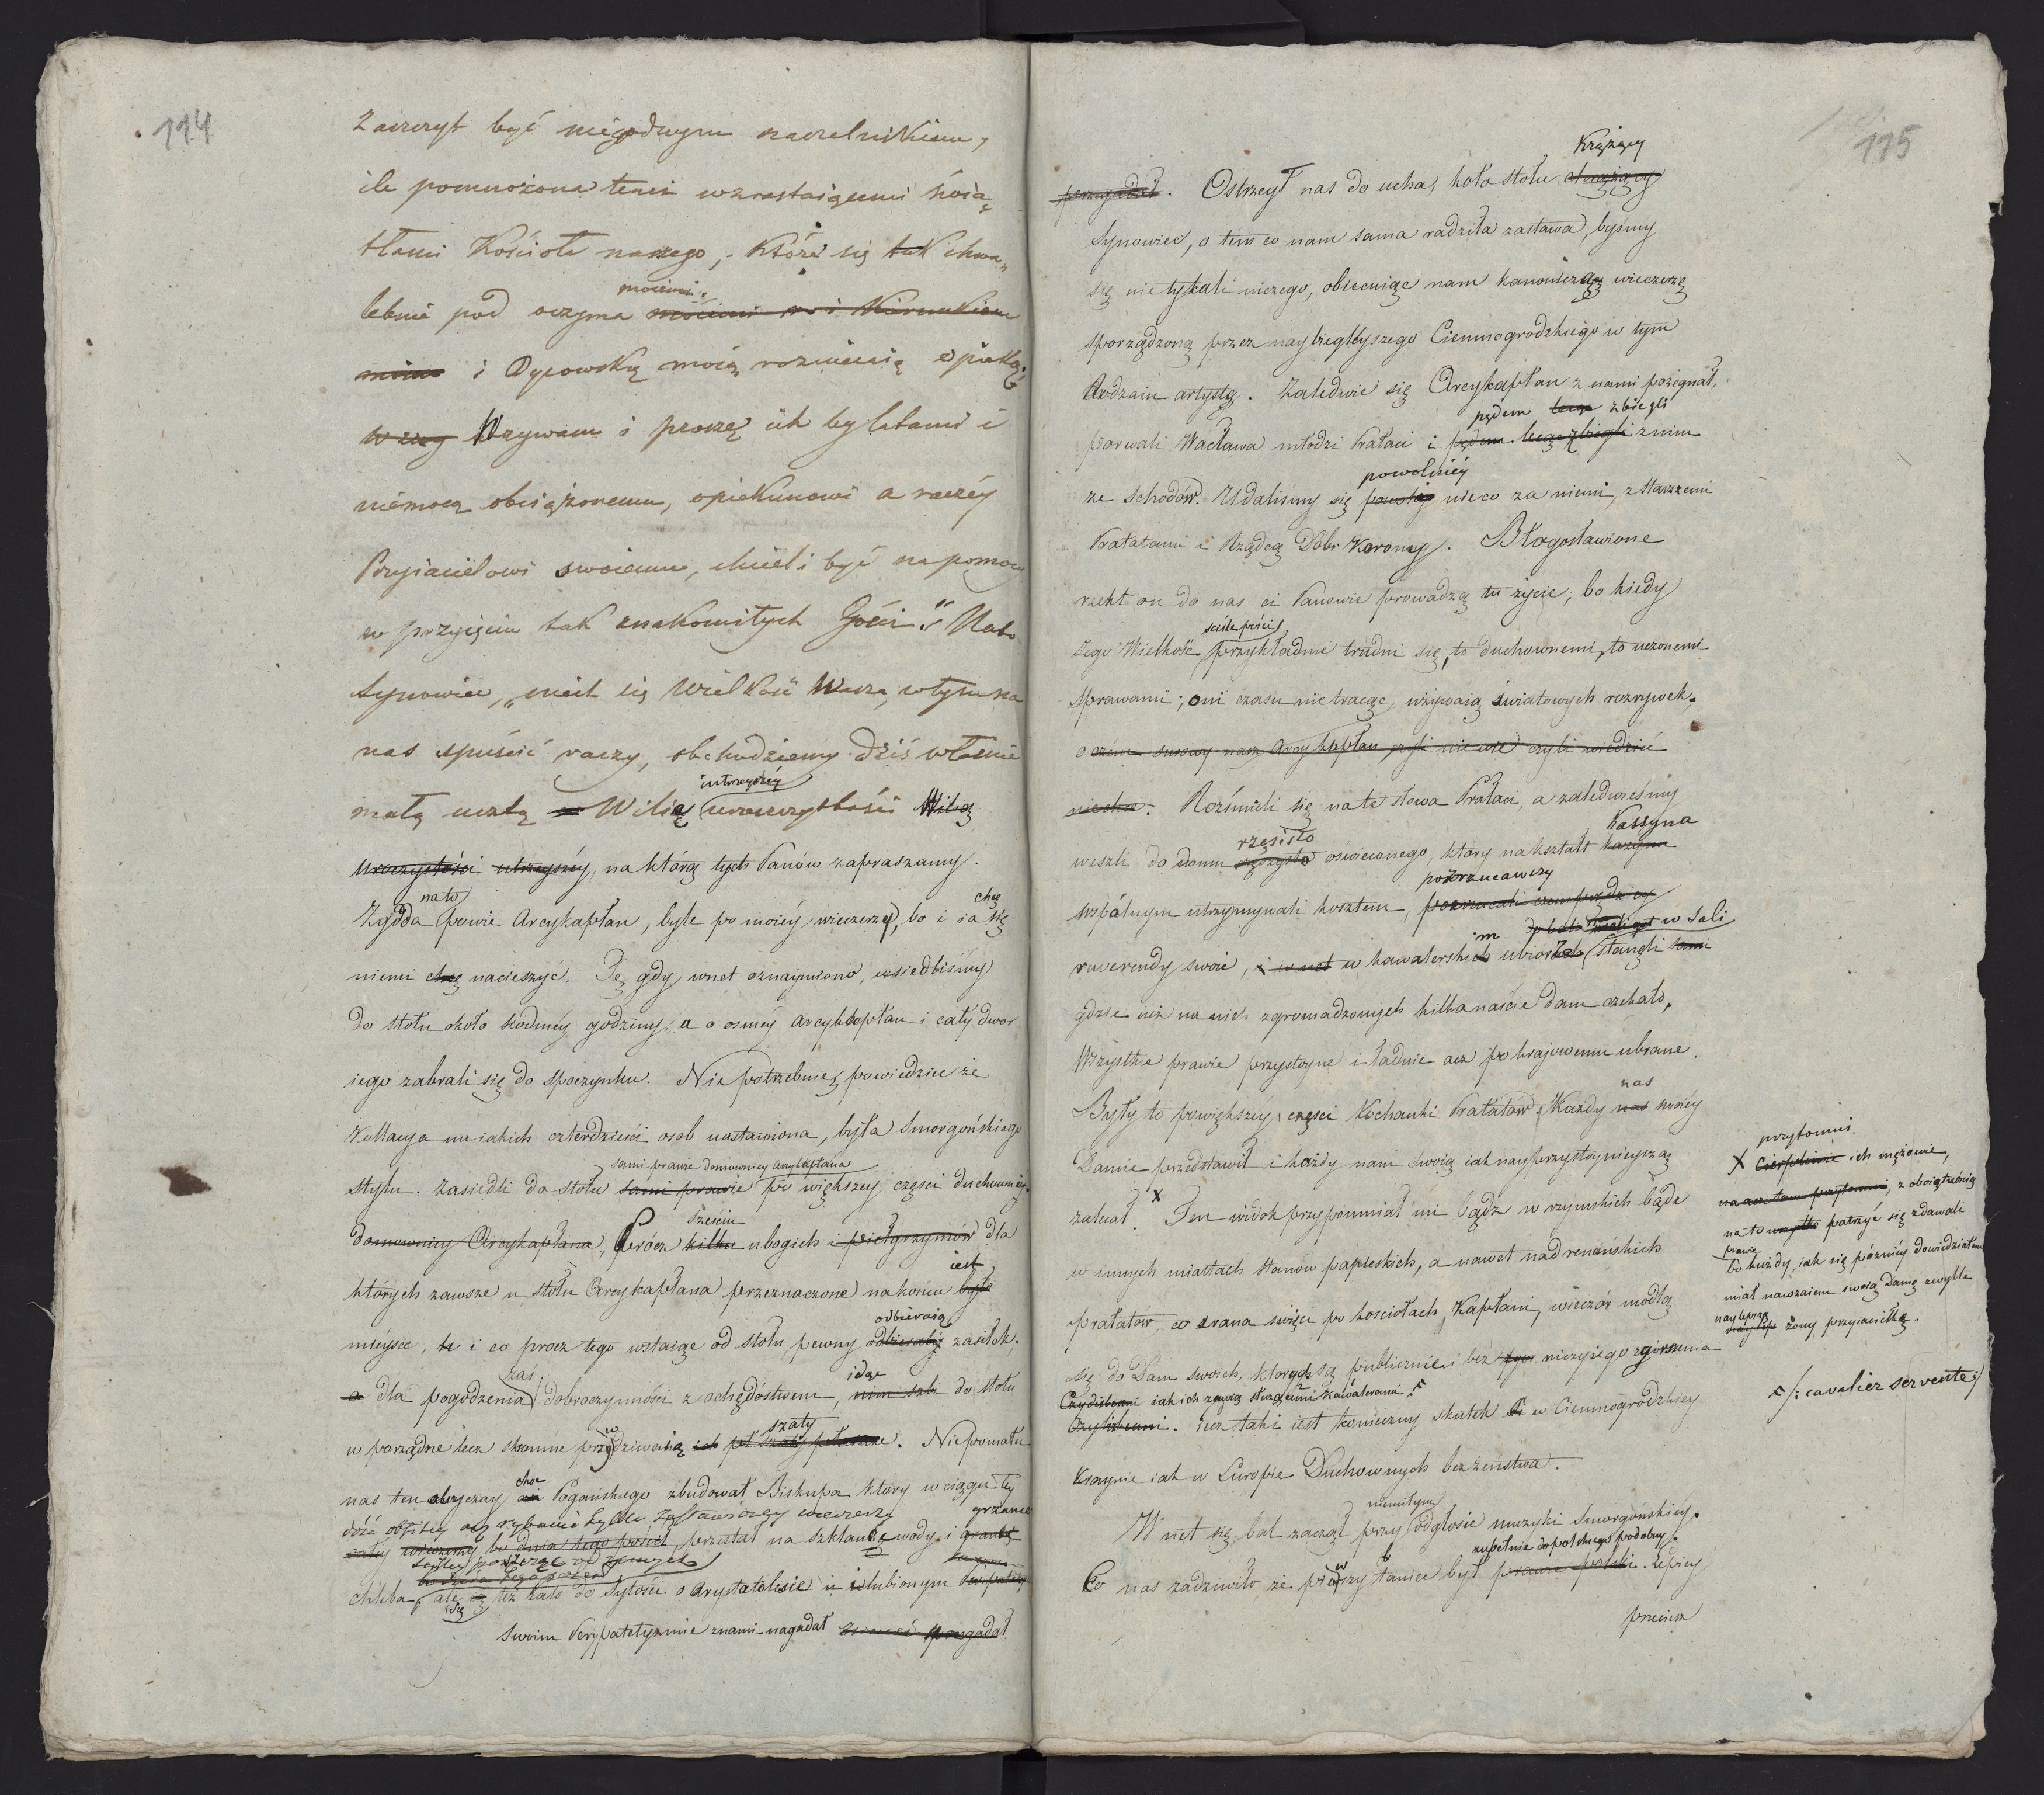 114
Zaszczyt być niegodnym naczelnikiem,
ile pomnożona temi wzrastaiącemi świa„
tłami Kościoła naszego, które się tak chwa„
lebnie pod oczyma moiemi
i Oycowską moią rozniecią opieką.
Wzywam i proszę ich by latami i
niemocą obciążonemu, opiekunowi a raczéy
Przyiacielowi swoiemu, chcieli być na pomocy
w przyięciu tak znakomitych Gości." Nato
Synowiec, „niech się Wielkość Wasza, w tym na
nas spuścić raczy, obchodziemy dziś właśnie
małą ucztą Wilią iutrzeyszéy uroczystości Wilią
uroczystości iutrzeyszéy, na którą tych Panów zapraszamy.
Zgoda nato powie Arcykapłan, byle po moiéy wieczerzy, bo i ia chcę się
niemi chcę nacieszyć. Tę gdy wnet oznaymiono, usiedliśmy
do stołu około siódméy godziny, a o osméy Arcykapłan i cały dwor
iego zabrali się do spoczynku. Nie potrzebnie powiedzieć że
Kollacya na iakich czterdzieści osob zastawiona, była Smorgońskiego
sami prawie domownicy Arcykapłana
stylu. Zasiedli do stołu sami prawie po większey części duchowni
domownicy Arcykapłana, prócz sześciu kilku ubogich i pielgrzymów dla
których zawsze u stołu Arcykapłana przeznaczone na końcu iest było
mieysce, i co prócz tego wstaiąc od stołu, pewny odbieraią odbierali zasiłek,
a dla pogodzenia zaś dobroczynności z ochędóstwem, idąc nim szli do stołu
w porządne lecz skromne przydziwaią ich szaty. Niepomału
nas ten obyczay choć Pogańskiego zbudował Biskupa który w ciągu tey
dość obfitey acz rybami tylko zastawioney wieczerzy
przestał na szklance wody i grzance
chleba, ale się też kato do sytości o Arystotelesie i ulubionym
swoim Perypatetyzmie znami nagadał

115
przegadał. Ostrzegł nas do ucha, koło stołu krążący
Synowiec, o tem co nam sama radziła zastawa, byśmy
się nie tykali niczego, obiecuiąc nam kanoniczną wieczerzę
sporządzoną przez naybiegleyszego Ciemnogrodzkiego w tym
Rodzaiu artystę. Zaledwie się Arcykapłan z nami pożegnał,
pędem zbiegli
porwali Wacława młodzi Prałaci i pędem lecąc zbiegli znim
powolniéy
ze schodów. Udaliśmy się nieco za niemi, z starszemi
Prałatami i Rządcą Dóbr Korony. Błogosławione
rzekł on do nas ci Panowie prowadzą tu życie, bo kiedy
Jego Wielkość przykładnie trudni się, to duchownemi, to uczonemi
sprawami; oni czasu nie tracąc, używaią światowych rozrywek.
o czem surowy nasz Arcykapłan, czyli nie wie czyli wiedzieć
niechce. Rozśmieli się na te słowa Prałaci, a zaledwieśmy
weszli do domu rzęsisto oświeconego, który nakształt Kassyna kazyna
wspólnym utrzymywali kosztem, porzucawszy
rewerendy swoie, i wnet w kawalerskim ubiorze stanęli w Sali
gdzie iuż na nich zgromadzonych kilkanaście dam czekało,
Wszystkie prawie przystoyne i ładnie acz po kraiowemu ubrane.
Były to po większéy części Kochanki Prałatów. Każdy nas swoiéy
Damie przedstawił i każdy nam swoią iak nayprzystoynieyszą
zalecał. X Ten widok przypomniał mi bądź w rzymskich bądź
w innych miastach stanów papieskich, a nawet nadreńskich
prałatów co zrana święci po kościołach Kapłani, wieczór modlą
się do Dam swoich, których są publicznie i bez niczyiego zgorszenia
Czyżisbeami iak ich zowią służącemi kawalerami.
Czyżisbeami. Lecz taki iest konieczny skutek w Ciemnogrodzkiey
Krainie iak w Europie Duchownych bezżeństwa.
Wnet się bal zaczął przy niemiłym odgłosie muzyki Smorgońskiey.
Co nas zadziwiło że pierwszy taniec był zupełnie do polskiego podobny prawie polski. Lepiey
przecież
X Cierpliwie przytomni ich mężowie,
na acz tam przytomni, z oboiętnością
na to wszystko patrzyć się zdawali
bo prawie każdy, iak się późniéy dowiedziałem
miał nawzaiem swoią Damę zwykle
naylepszą żony przyiaciółkę.
/: cavalier servente :/